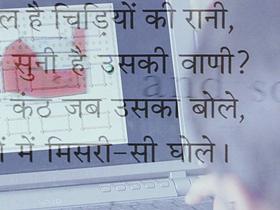 ल है चिड़ियों की रानी,
सुनी है उसकी वाणी?
कंठ जब उसका बोले,
में मिसरी-सी घोले।
and so